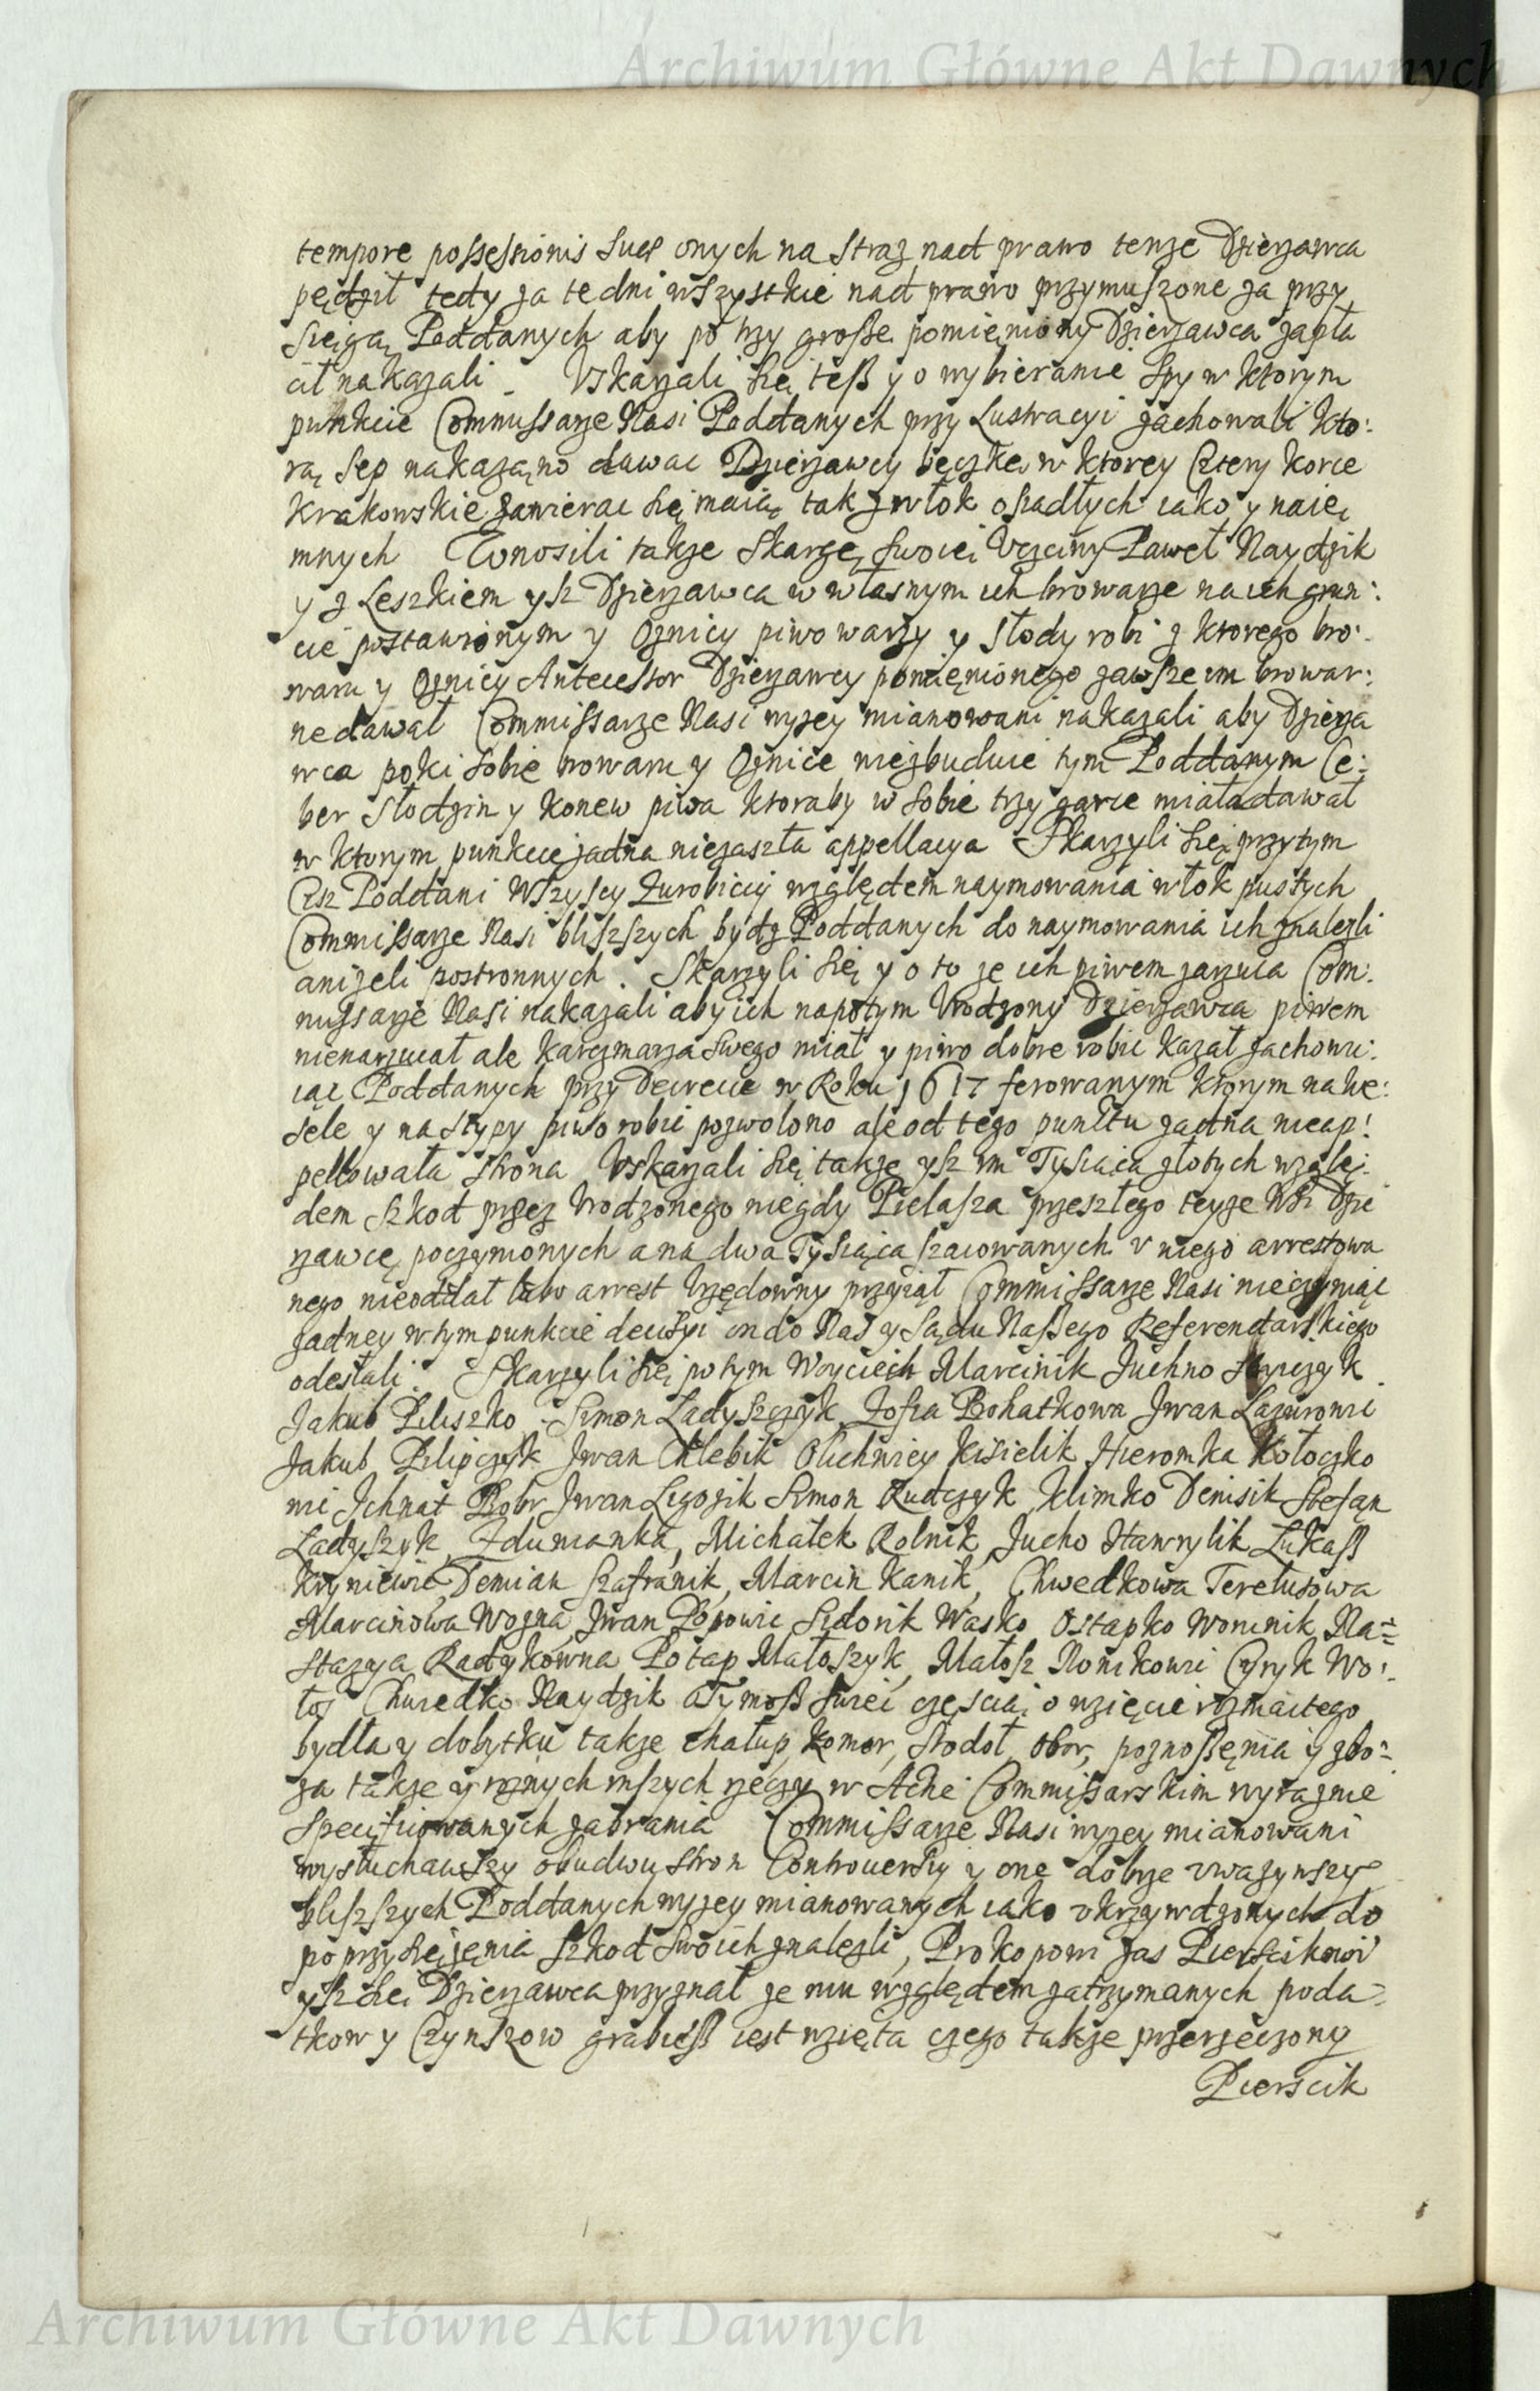 Archiwum Główne Akt Dawnych
tempore possessionis suae onych na straz nad prawo tenze Dzierzawca
pędził tedy za te dni wszystkie nad prawo przymuszone za przy
sięgą Poddanych aby po trzy grosze pomieniony Dzierzawca zapła
cił nakazali Vskarzali się tesz y o wybieranie Spy w ktorym
punkcie Commissarze Nasi Poddanych przy Lustracyi zachowali kto:
rą Sep nakazano dawac Dzierzawcy beczkę w ktorey Cztery korce
Krakowskie zawierac się maią tak z włok osiadłych iako y naię
mnych Wnosili takze Skargę swoię Vczciwy Paweł Naydzik
y z Leszkiem ysz Dzierzawca w własnym ich browarze na ich grun:
cie postawionym y Oznicy piwo warzy y słody robi z ktorego bro:
waru y Oznicy Antecessor Dzierzawcy pomienionego zawsze im browar:
ne dawał Commissarze Nasi wyzey mianowani nakazali aby Dzierza
wca poki sobie browaru y Oznice niezbuduie tym Poddanym Ce:
ber Słodzin y konew piwa ktoraby w sobie trzy garce miała dawał
w ktorym punkcie zadna niezaszła appellacya Skarzyli się przytym
Cisz Poddani Wszyscy Zurobiccy względem naymowania włok pustych
Commissarze Nasi blisszych bydz Poddanych do naymowania ich znalezli
anizeli postronnych. Skarzyli się y o to ze ich piwem zarzuca Com:
missarze Nasi nakazali aby ich napotym Vrodzony Dzierzawca piwem
nienarzucał ale karczmarza swego miał y piwo dobre robic kazał zachowu:
iąc Poddanych przy Decrecie w Roku 1617 ferowanym ktorym na we:
sele y na stypy piwo robic pozwolono ale od tego punktu zadna nieap:
pellowała strona Vskarzali się takze ysz im Tysiąca złotych wzglę:
dem szkod przez Vrodzonego niegdy Pielasza przeszłego teyze Wsi Dzie
rzawcę poczynionych a na dwa Tysiąca szacowanych v niego arrestowa
nego nieoddał lubo arrest Vrzędowny przyiął Commissarze Nasi nieczyniąc
zadney w tym punkcie decisyi in do Nas y Sądu Naszego Referendarskiego
odesłali. Skarzyli się potym Woyciech Marcinik Juchno
Jakub Piliszko Simon Ladyszczyk Zofia Bohatkowa Jwan Lazurowic
Jakub Pilipczyk Jwan Chlebik Olichwiey Kisielik Hieromka Kołoczko
wic Jchnat Bobr Jwan Ligozik Simon Rudczyk Klimko Denisik Stefan
Ladyszyk, Zdunianka, Michałek Rolnik, Jucho Hawrylik Lukasz
Kryniewic Demian Szafranik, Marcin Kanik, Chwedkowa Terelusowa
Marcinowa Wozna, Jwan Popowic Sidorik Wasko Ostapko Woronik, Na=
stazya Radykowna Potap Małoszyk, Małosz Nonikowic Cyryk Wo:
łos Chwedko Naydzik Atymosz swei częscią o wzięcie rozmaitego
bydła y dobytku takze chałup, komor, stodoł, obor, poznoszenia y zbo:
za takze y roznych inszych rzeczy w Akcie Commissarskim wyraznie
specifiowanych zabrania Commissarze Nasi wyzey mianowani
wysłuchawszy obudwu stron Controversiy y one dobrze vwazywszy
blisszych Poddanych wyzey mianowanych iako vkrzywdzonych do
poprzysięzenia szkod swoich znalezli, Prokopowi zas Pierscikowi
ysz się Dzierzawca przyznał ze mu względem zatrzymanych poda=
tkow y Czynszow grabiesz iest wzięta czego takze przerzeczony
Pierscik
Archiwum Główne Akt Dawnych